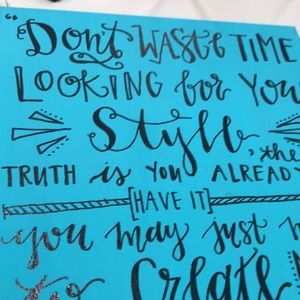 "Don't WASTE TIME
LOOKING for YOU
Style
the
TRUTH is YOU ALREADY
[HAVE IT]
you may just
to Create